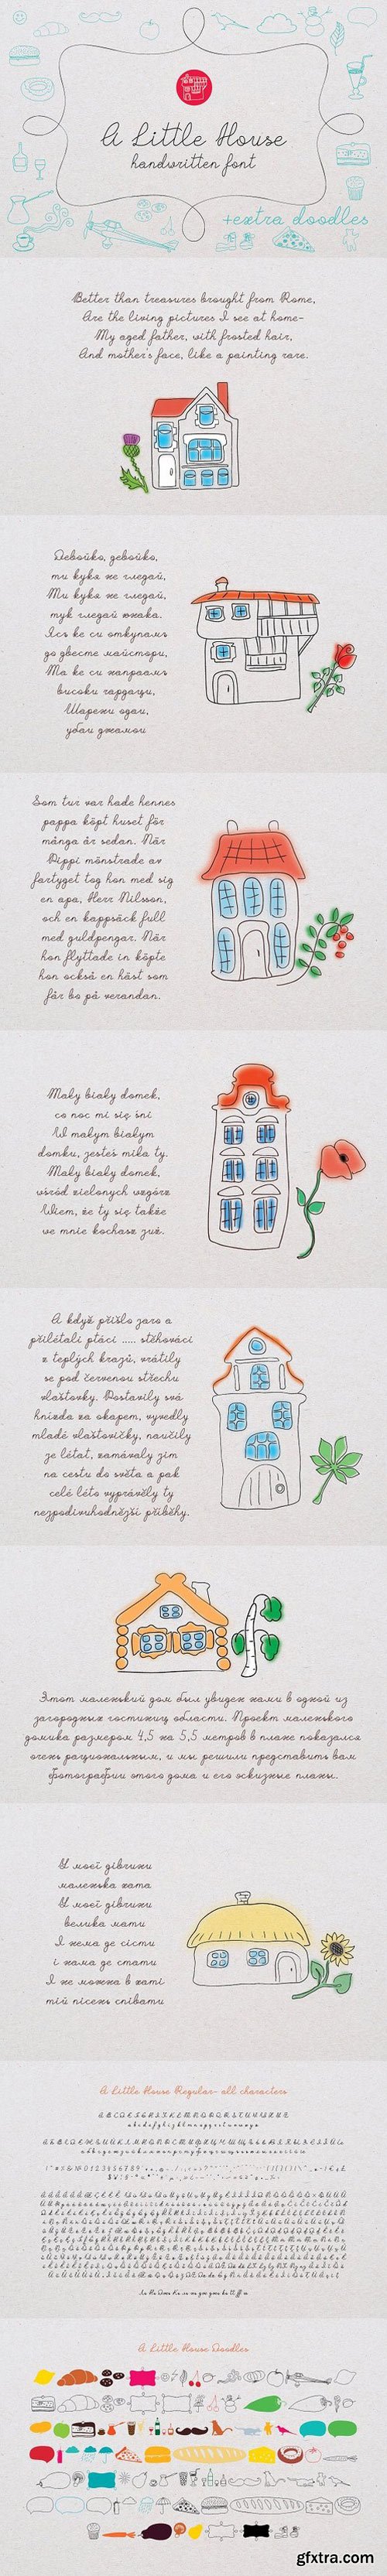 A Little House
handwritten font
+extra doodles
Better than treasures brought from Rome,
Are the living pictures I see at home-
My aged father, with frosted hair,
And mother's face, like a painting rare.
Девойко, девойко,
ти кукя не гледай,
Ти кукя не гледай,
тук гледай юнака.
Ясъ ке си откупамъ
до двесте майстори,
Та ке си напраамъ
високи чардаци,
Шарени одаи,
убаи джамои
Som tur var hade hennes
pappa köpt huset för
många år sedan. När
Pippi mönstrade av
fartyget tog hon med sig
en apa, Herr Nilsson,
och en kappsäck full
med guldpengar. När
hon flyttade in köpte
hon också en häst som
får bo på verandan.
Mały biały domek,
co noc mi się śni
W małym białym
domku, jesteś miła ty.
Mały biały domek,
wśród zielonych wzgórz
Wiem, że ty się także
we mnie kochasz już.
A když přišlo jaro a
přilétali ptáci ..... stěhováci
z teplých krajů, vrátily
se pod červenou střechu
vlaštovky. Postavily svá
hnízda za okapem, vyvedly
mladé vlaštovičky, naučily
je létat, zamávaly jim
na cestu do světa a pak
celé léto vyprávěly ty
nejpodivuhodnější příběhy.
Этот маленький дом был увиден нами в одной из
загородных гостиниц области. Проект маленького
домика размером 4,5 на 5,5 метров в плане показался
очень рациональным, и мы решили представить вам
фотографии этого дома и его эскизные планы.
У моєї дівчини
маленька хата
У моєї дівчини
велика мати
І нема де сісти
і нама де стати
І не можна в хаті
тій пісень співати
A Little House Regular- all characters
A Little House Doodles
gfxtra.com